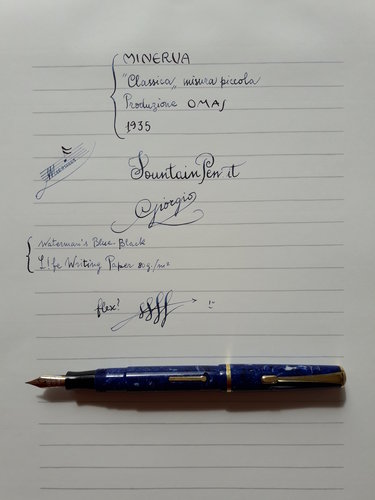 MINERVA
"Classica„ misura piccola
Produzione OMAS
1935
FountainPen.it
@Giorgio
Waterman's Blue Black
L!fe Writing Paper 80g/m²
flex! ffff :)